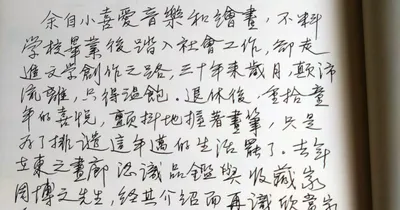 余自小喜愛音樂和繪畫，不料
學校畢業後踏入社會工作，卻走
進文學創作之路，三十年來歲月，顛沛
流離，只得溫飽。退休後，重拾童
年的喜悅，顫抖地握著畫筆，只是
為了排遣這年邁的生活罷了。去年
在東之畫廊認識品鑑與收藏家
周博之先生，經其介紹而再識欣賞家